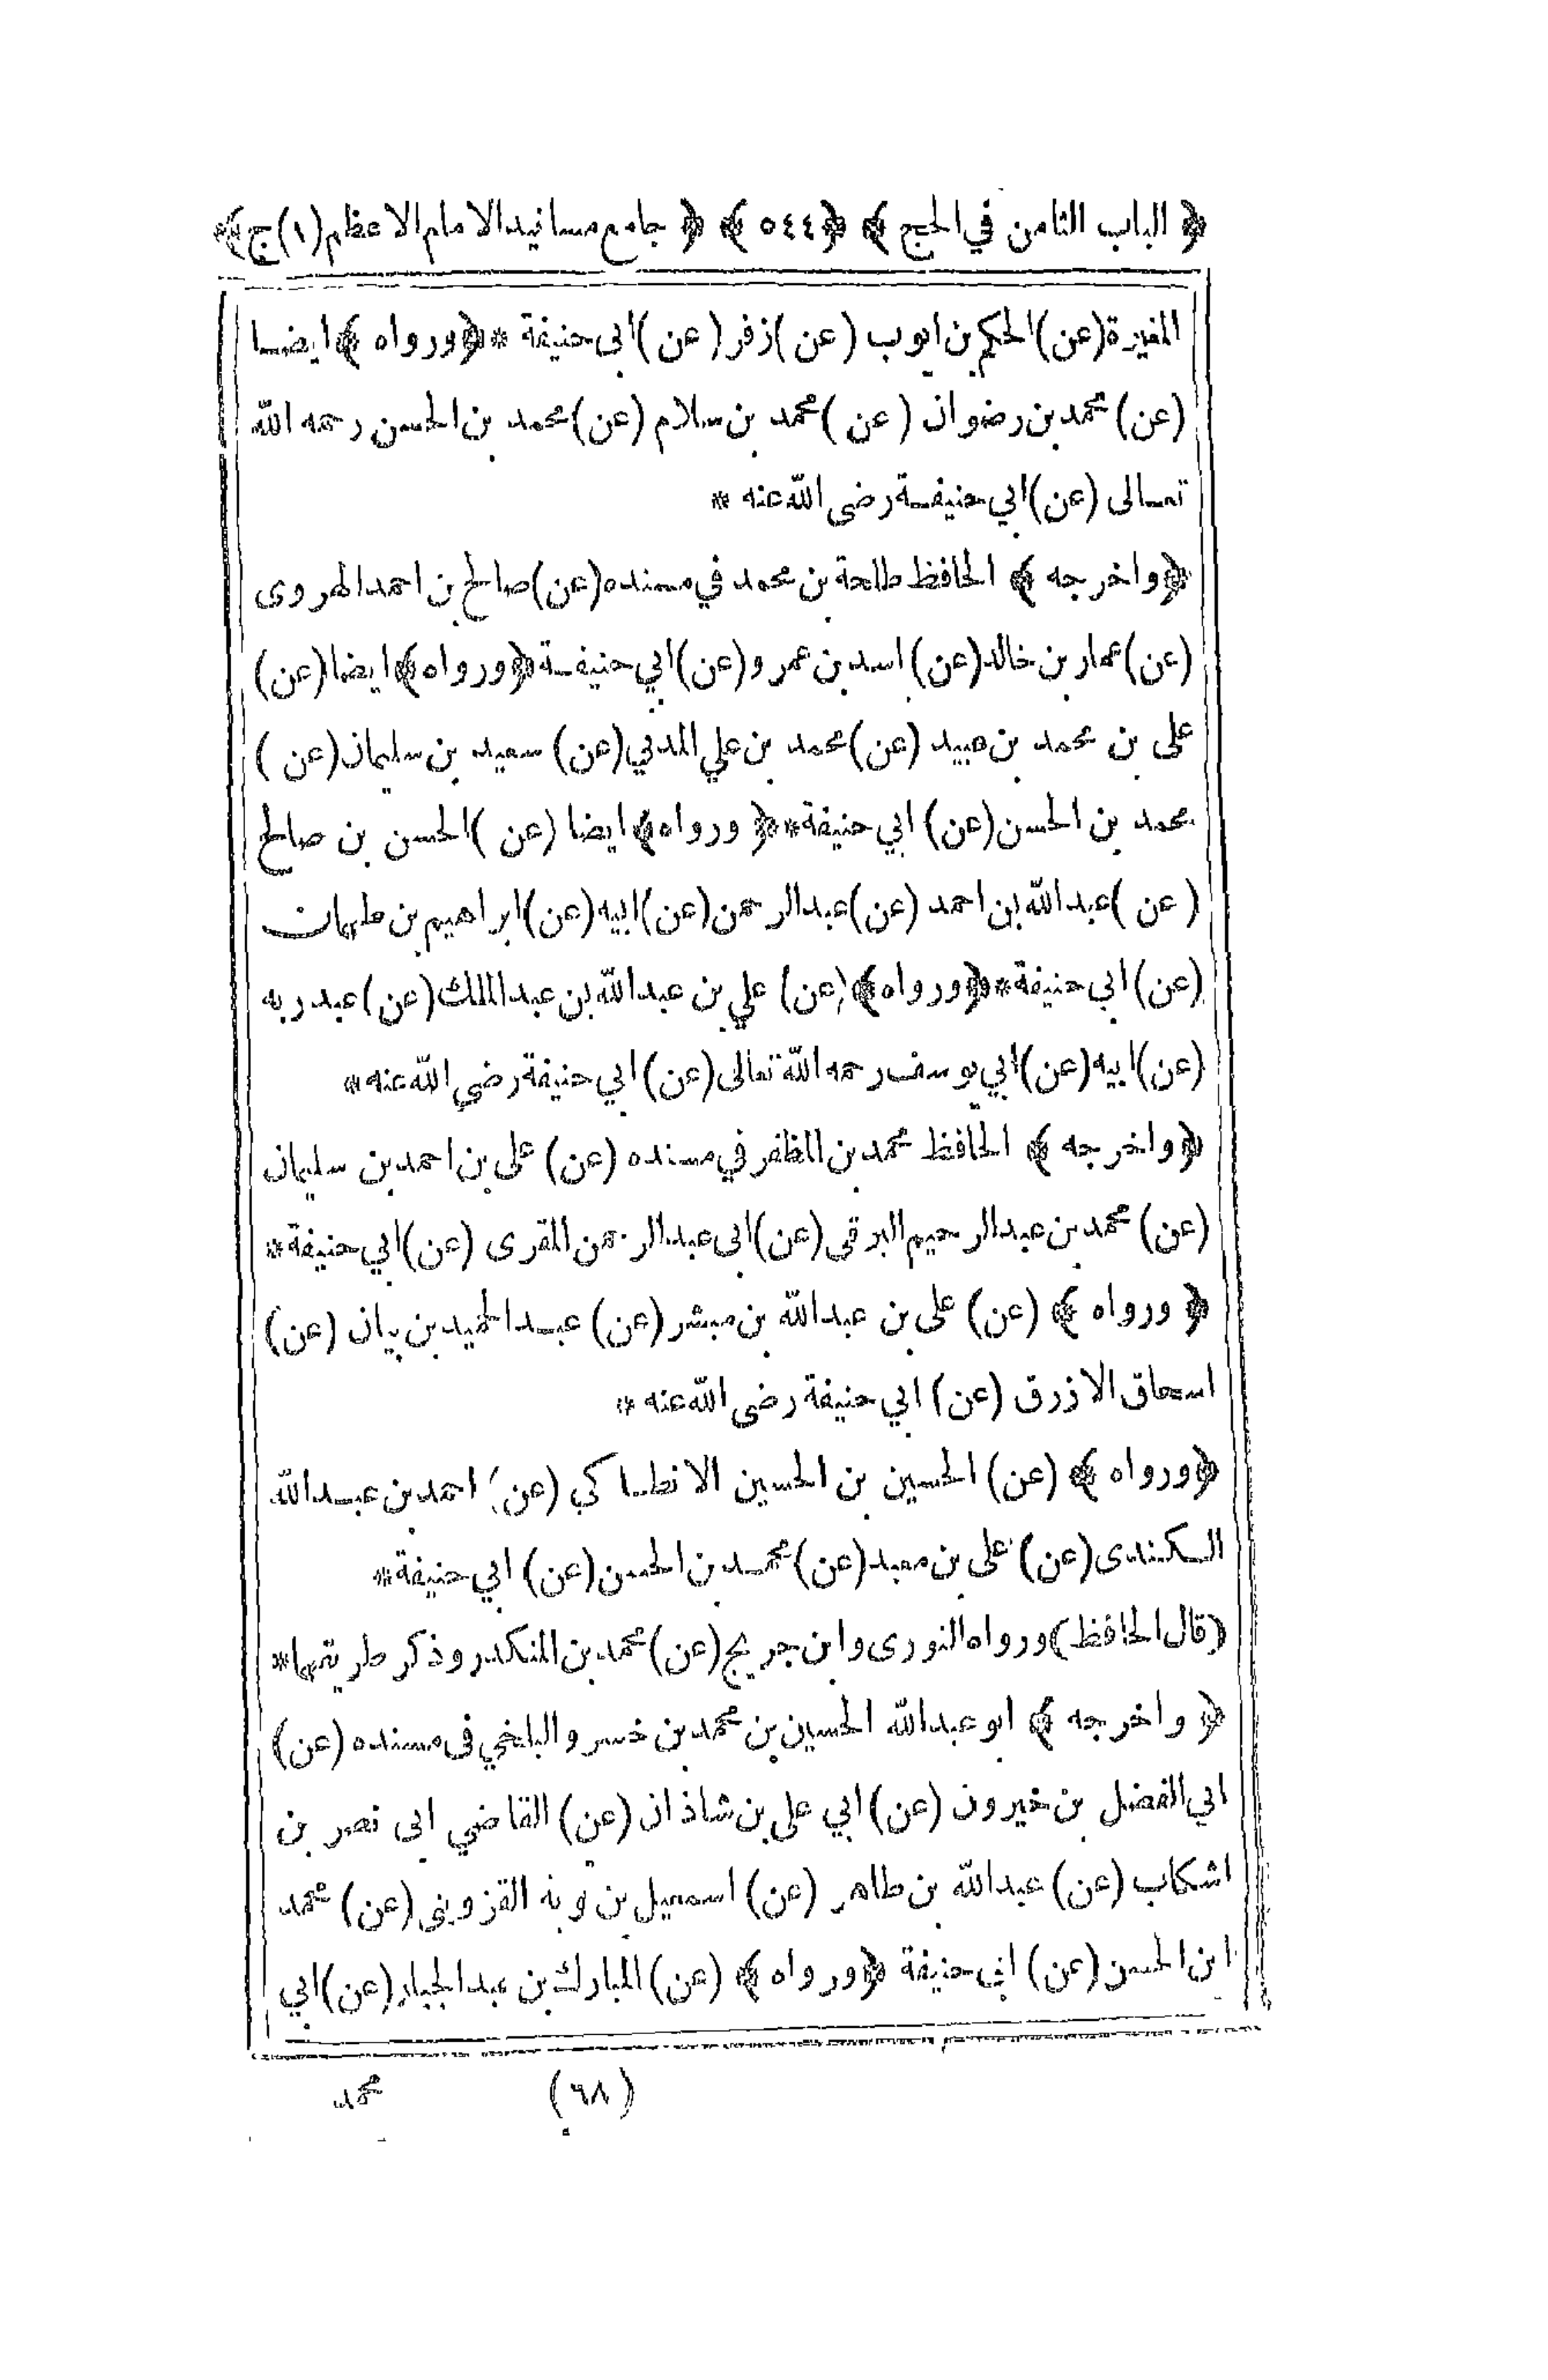 ﴿ الباب الثامن في الحج ﴾ ﴿ ٥٤٤ ﴾ ﴿ جامع مسانيد الامام الاعظم (١) ج ﴾
المغيرة (عن) الحكم بن ايوب (عن) زفر (عن) ابى حنيفة * ﴿ورواه﴾ ايضا
(عن) محمد بن رضوان (عن) محمد بن سلام (عن) محمد بن الحسن رحمه الله
تعالى (عن) ابي حنيفة رضى الله عنه *
﴿واخرجه﴾ الحافظ طلحة بن محمد في مسنده (عن) صالح بن احمد الهروى
(عن) عمار بن خالد (عن) اسد بن عمرو (عن) ابي حنيفة ﴿ورواه﴾ ايضا (عن)
على بن محمد بن عبيد (عن) محمد بن علي المدني (عن) سعيد بن سليمان (عن)
محمد بن الحسن (عن) ابي حنيفة * ﴿ورواه﴾ ايضا (عن) الحسن بن صالح
(عن) عبد الله بن احمد (عن) عبد الرحمن (عن) ابيه (عن) ابراهيم بن طهمان
(عن) ابي حنيفة * ﴿ورواه﴾ (عن) علي بن عبد الله بن عبد الملك (عن) عبد ربه
(عن) ابيه (عن) ابي يوسف رحمه الله تعالى (عن) ابي حنيفة رضي الله عنه *
﴿واخرجه﴾ الحافظ محمد بن المظفر في مسنده (عن) على بن احمد بن سليمان
(عن) محمد بن عبد الرحيم البرقى (عن) ابى عبد الرحمن المقرى (عن) ابي حنيفة *
﴿ورواه﴾ (عن) على بن عبد الله بن مبشر (عن) عبد الحميد بن بيان (عن)
اسحاق الازرق (عن) ابي حنيفة رضى الله عنه *
﴿ورواه﴾ (عن) الحسين بن الحسين الانطاكي (عن) احمد بن عبد الله
الكندى (عن) على بن معبد (عن) محمد بن الحسن (عن) ابي حنيفة *
(قال الحافظ) ورواه الثورى وابن جريج (عن) محمد بن المنكدر وذكر طريقهما *
﴿واخرجه﴾ ابو عبد الله الحسين بن محمد بن خسرو البلخي فى مسنده (عن)
ابي الفضل بن خيرون (عن) ابي على بن شاذان (عن) القاضي ابى نصر بن
اشكاب (عن) عبد الله بن طاهر (عن) اسمعيل بن توبة القزوينى (عن) محمد
ابن الحسن (عن) ابي حنيفة ﴿ورواه﴾ (عن) المبارك بن عبد الجبار (عن) ابي
(٦٨) محمد